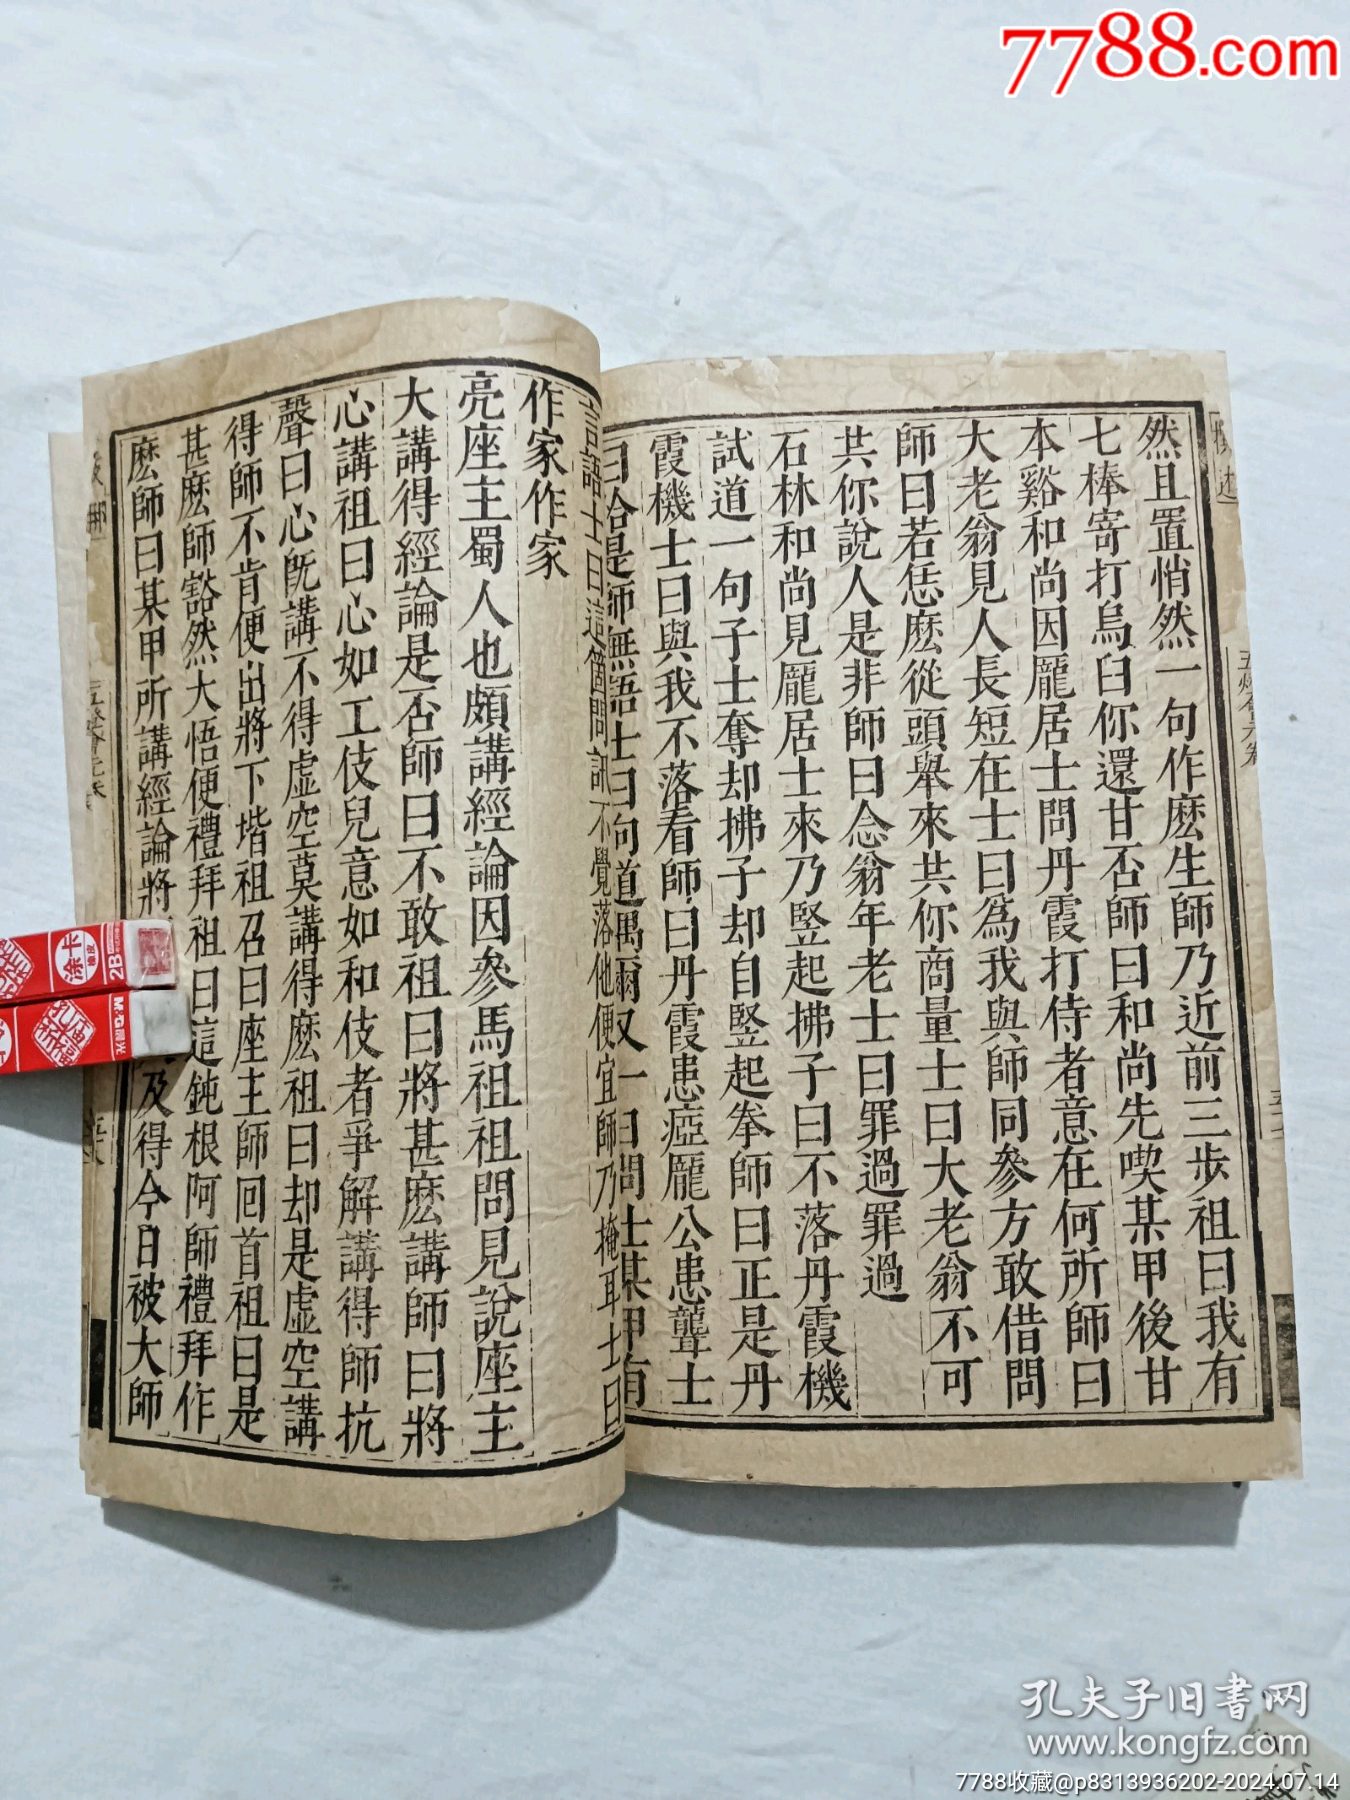 7788.com
然且置悄然一句作麽生師乃近前三步祖曰我有
七棒寄打烏臼你還甘否師曰和尚先喫某甲後甘
本谿和尚因龐居士問丹霞打侍者意在何所師曰
大老翁見人長短在士曰爲我與師同參方敢借問
師曰若恁麽從頭舉來共你商量士曰大老翁不可
共你說人是非師曰念翁年老士曰罪過罪過
石林和尚見龐居士來乃竪起拂子曰不落丹霞機
試道一句子士奪却拂子却自竪起拳師曰正是丹
霞機士曰與我不落看師曰丹霞患瘂龐公患聾士
曰恰是師無語士曰向道偶爾又一日問士某甲有
言語士曰這箇問訊不覺落他便宜師乃掩耳士曰
作家作家
亮座主蜀人也頗講經論因參馬祖祖問見說座主
大講得經論是否師曰不敢祖曰將甚麽講師曰將
心講祖曰心如工伎兒意如和伎者爭解講得師抗
聲曰心旣講不得虛空莫講得麽祖曰却是虛空講
得師不肯便出將下堦祖召曰座主師回首祖曰是
甚麽師豁然大悟便禮拜祖曰這鈍根阿師禮拜作
麽師曰某甲所講經論將
及得今日被大師
五燈會元卷
涂卡
2B
M&G晨光
孔庙祈福
孔夫子旧書网
www.kongfz.com
7788收藏@p8313936202-2024.07.14